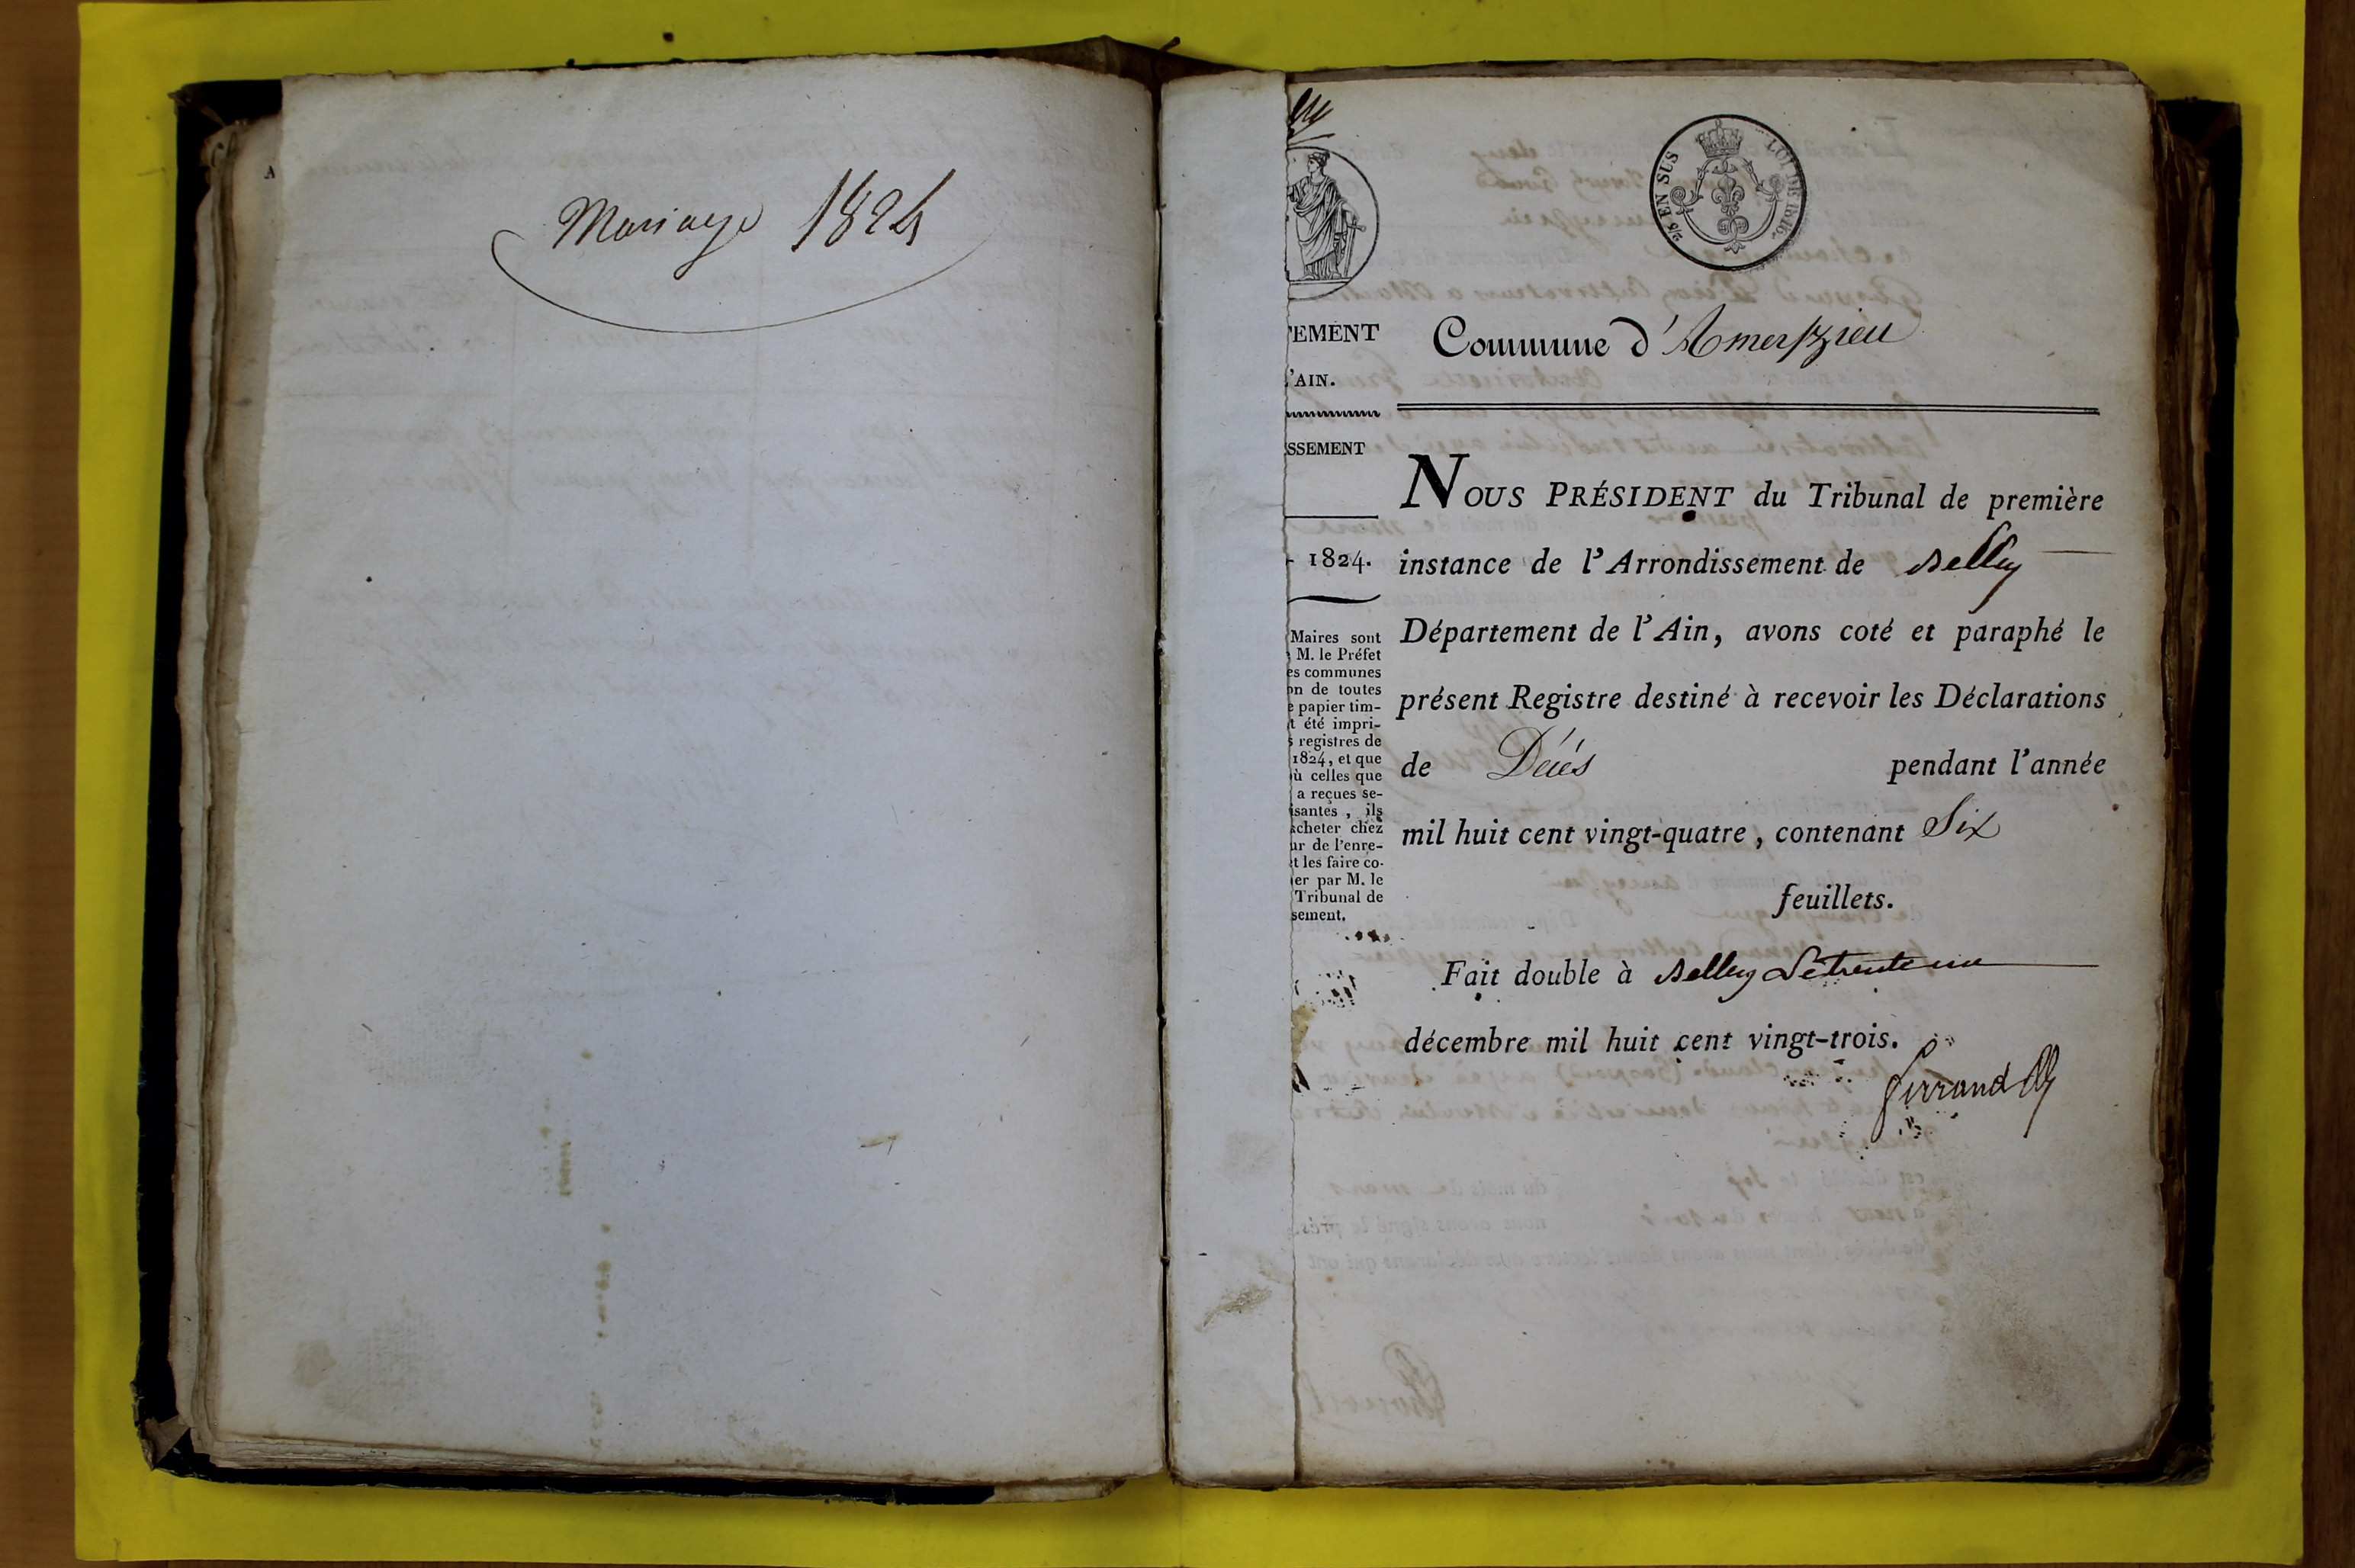 Mariage 1824
A
EN SUS
LOI DE 1816.
Commune d'Ameyzieu
'EMENT
'AIN.
SSEMENT
1824.
Maires sont
M. le Préfet
es communes
on de toutes
e papier tim-
t été impri-
s registres de
1824, et que
ù celles que
a reçues se-
isantes, ils
acheter chez
ur de l'enre-
t les faire co-
er par M. le
Tribunal de
sement.
NOUS PRÉSIDENT du Tribunal de première
instance de l'Arrondissement de Belley
Département de l'Ain, avons coté et paraphé le
présent Registre destiné à recevoir les Déclarations
de Décés pendant l'année
mil huit cent vingt-quatre, contenant Six
feuillets.
Fait double à Belley Le trente un
décembre mil huit cent vingt-trois.